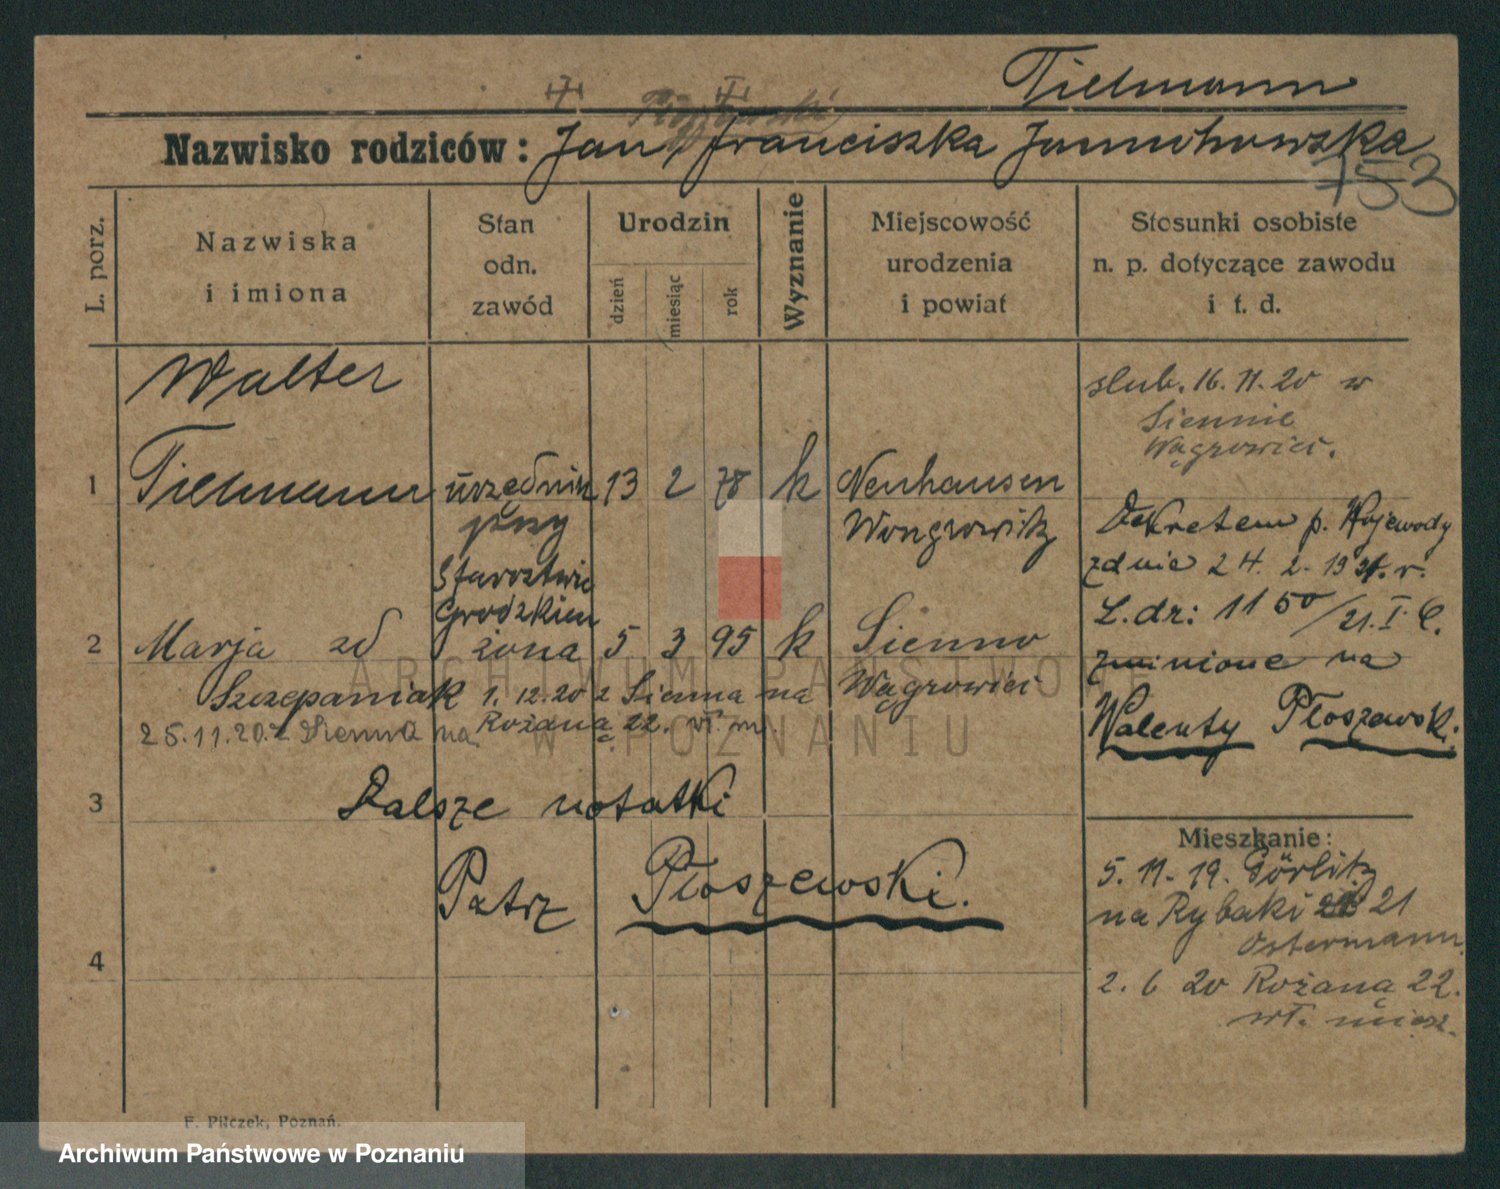 Tielmann
Nazwisko rodziców: Jan, Franciszka
753
L. porz.
Nazwiska i imiona
Stan odn. zawód
Urodzin
dzień
miesiąc
rok
Wyznanie
Miejscowość urodzenia i powiat
Stosunki osobiste n. p. dotyczące zawodu i t. d.
Walter
ślub. 16.11.20 w
Siennie
Wągrowiec.
1 Tielmann urzędnik 13 2 78 k Neuhausen
przy Wongrowitz
Starostwie
Grodzkiem
Dekretem p. Wojewody
z dnia 24. 2. 1921. r.
L. dz: 1150/21. I. C.
zmienione na
Walenty Płoszewski.
2 Marja zd żona 5 3 95 k Sienno
Szczepaniak 1. 12. 20 z Sienna na Wągrowiec
25.11.20 z Sienna na Rożana 22. wł. m.
3 Dalsze notatki
Patrz Płoszewski.
4
Mieszkanie:
5. 11. 19. Görlitz
na Rybaki 21
Ostermann.
2. 6 20 Rożana 22.
wł. miesz.
F. Pilczek, Poznań.
ARCHIWUM PAŃSTWOWE
W POZNANIU
Archiwum Państwowe w Poznaniu